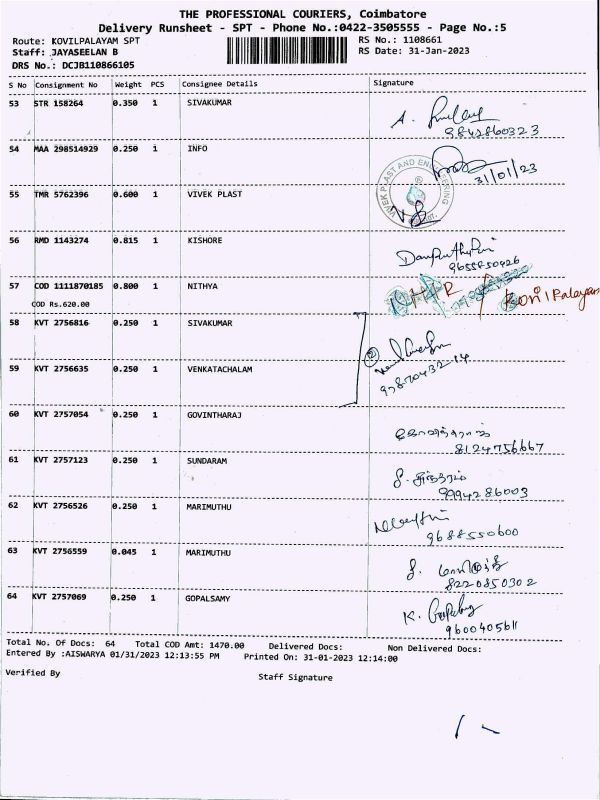 THE PROFESSIONAL COURIERS, Coimbatore
Delivery Runsheet - SPT - Phone No.:0422-3505555 - Page No.:5
Route: KOVILPALAYAM SPT RS No.: 1108661
Staff: JAYASEELAN B RS Date: 31-Jan-2023
DRS No.: DCJB110866105
S No Consignment No Weight PCS Consignee Details Signature
53 STR 158264 0.350 1 SIVAKUMAR
9842860323
54 MAA 298514929 0.250 1 INFO
31/01/23
55 TMR 5762396 0.600 1 VIVEK PLAST
VIVEK PLAST AND ENGINEERING
56 RMD 1143274 0.815 1 KISHORE
9655850926
57 COD 1111870185 0.800 1 NITHYA
COD Rs.620.00
KovilPalayam
58 KVT 2756816 0.250 1 SIVAKUMAR
59 KVT 2756635 0.250 1 VENKATACHALAM
②
9787043214
60 KVT 2757054 0.250 1 GOVINTHARAJ
கோவிந்தராஜ்
8124756667
61 KVT 2757123 0.250 1 SUNDARAM
9994286003
62 KVT 2756526 0.250 1 MARIMUTHU
9688550600
63 KVT 2756559 0.045 1 MARIMUTHU
8220850302
64 KVT 2757069 0.250 1 GOPALSAMY
9600405611
Total No. Of Docs: 64 Total COD Amt: 1470.00 Delivered Docs: Non Delivered Docs:
Entered By :AISWARYA 01/31/2023 12:13:55 PM Printed On: 31-01-2023 12:14:00
Verified By Staff Signature